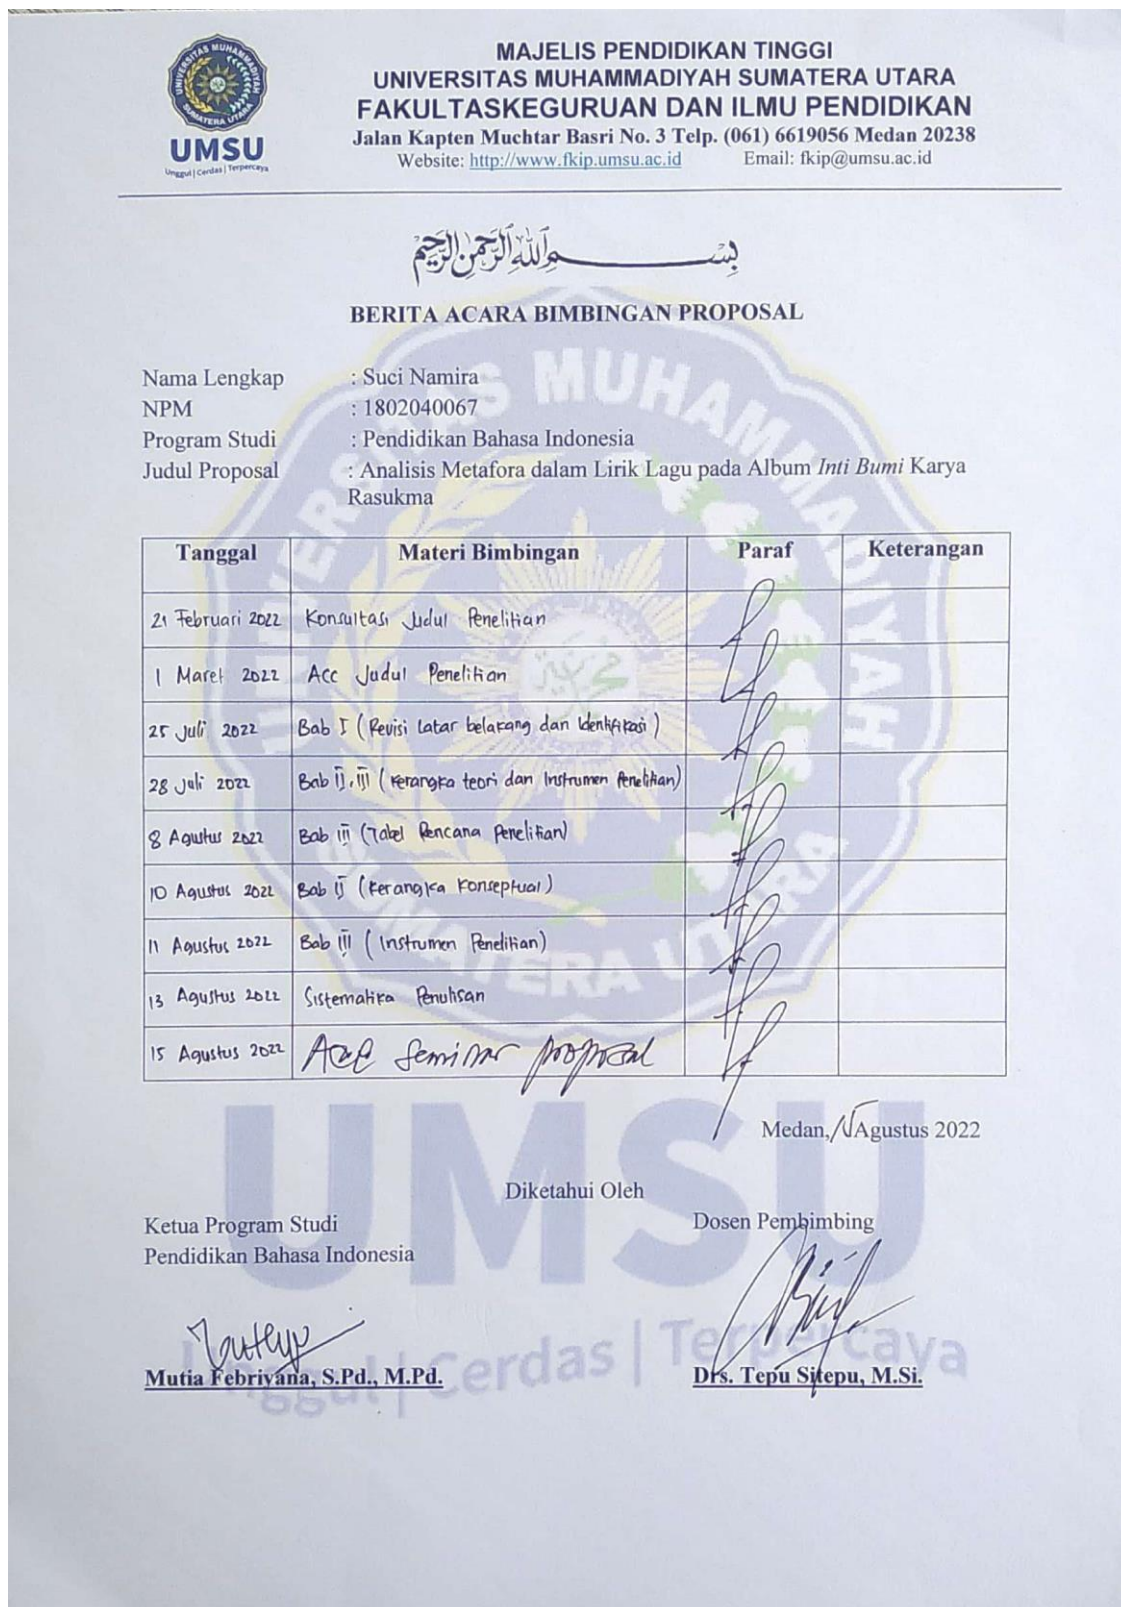 MAJELIS PENDIDIKAN TINGGI
UNIVERSITAS MUHAMMADIYAH SUMATERA UTARA
FAKULTASKEGURUAN DAN ILMU PENDIDIKAN
Jalan Kapten Muchtar Basri No. 3 Telp. (061) 6619056 Medan 20238
Website: http://www.fkip.umsu.ac.id Email: fkip@umsu.ac.id
UNIVERSITAS MUHAMMADIYAH
SUMATERA UTARA
UMSU
Unggul | Cerdas | Terpercaya
بِسْمِ اللَّهِ الرَّحْمَنِ الرَّحِيمِ
BERITA ACARA BIMBINGAN PROPOSAL
Nama Lengkap : Suci Namira
NPM : 1802040067
Program Studi : Pendidikan Bahasa Indonesia
Judul Proposal : Analisis Metafora dalam Lirik Lagu pada Album Inti Bumi Karya
Rasukma
Tanggal Materi Bimbingan Paraf Keterangan
21 Februari 2022 Konsultasi Judul Penelitian
1 Maret 2022 Acc Judul Penelitian
25 Juli 2022 Bab I (Revisi latar belakang dan Identifikasi)
28 Juli 2022 Bab II, III (Kerangka teori dan Instrumen Penelitian)
8 Agustus 2022 Bab III (Tabel Rencana Penelitian)
10 Agustus 2022 Bab II (Kerangka Konseptual)
11 Agustus 2022 Bab III (Instrumen Penelitian)
13 Agustus 2022 Sistematika Penulisan
15 Agustus 2022 Acc Seminar proposal
Medan, Agustus 2022
Diketahui Oleh
Ketua Program Studi Dosen Pembimbing
Pendidikan Bahasa Indonesia
Mutia Febriyana, S.Pd., M.Pd. Drs. Tepu Sitepu, M.Si.
UNIVERSITAS MUHAMMADIYAH
SUMATERA UTARA
UMSU
Unggul | Cerdas | Terpercaya